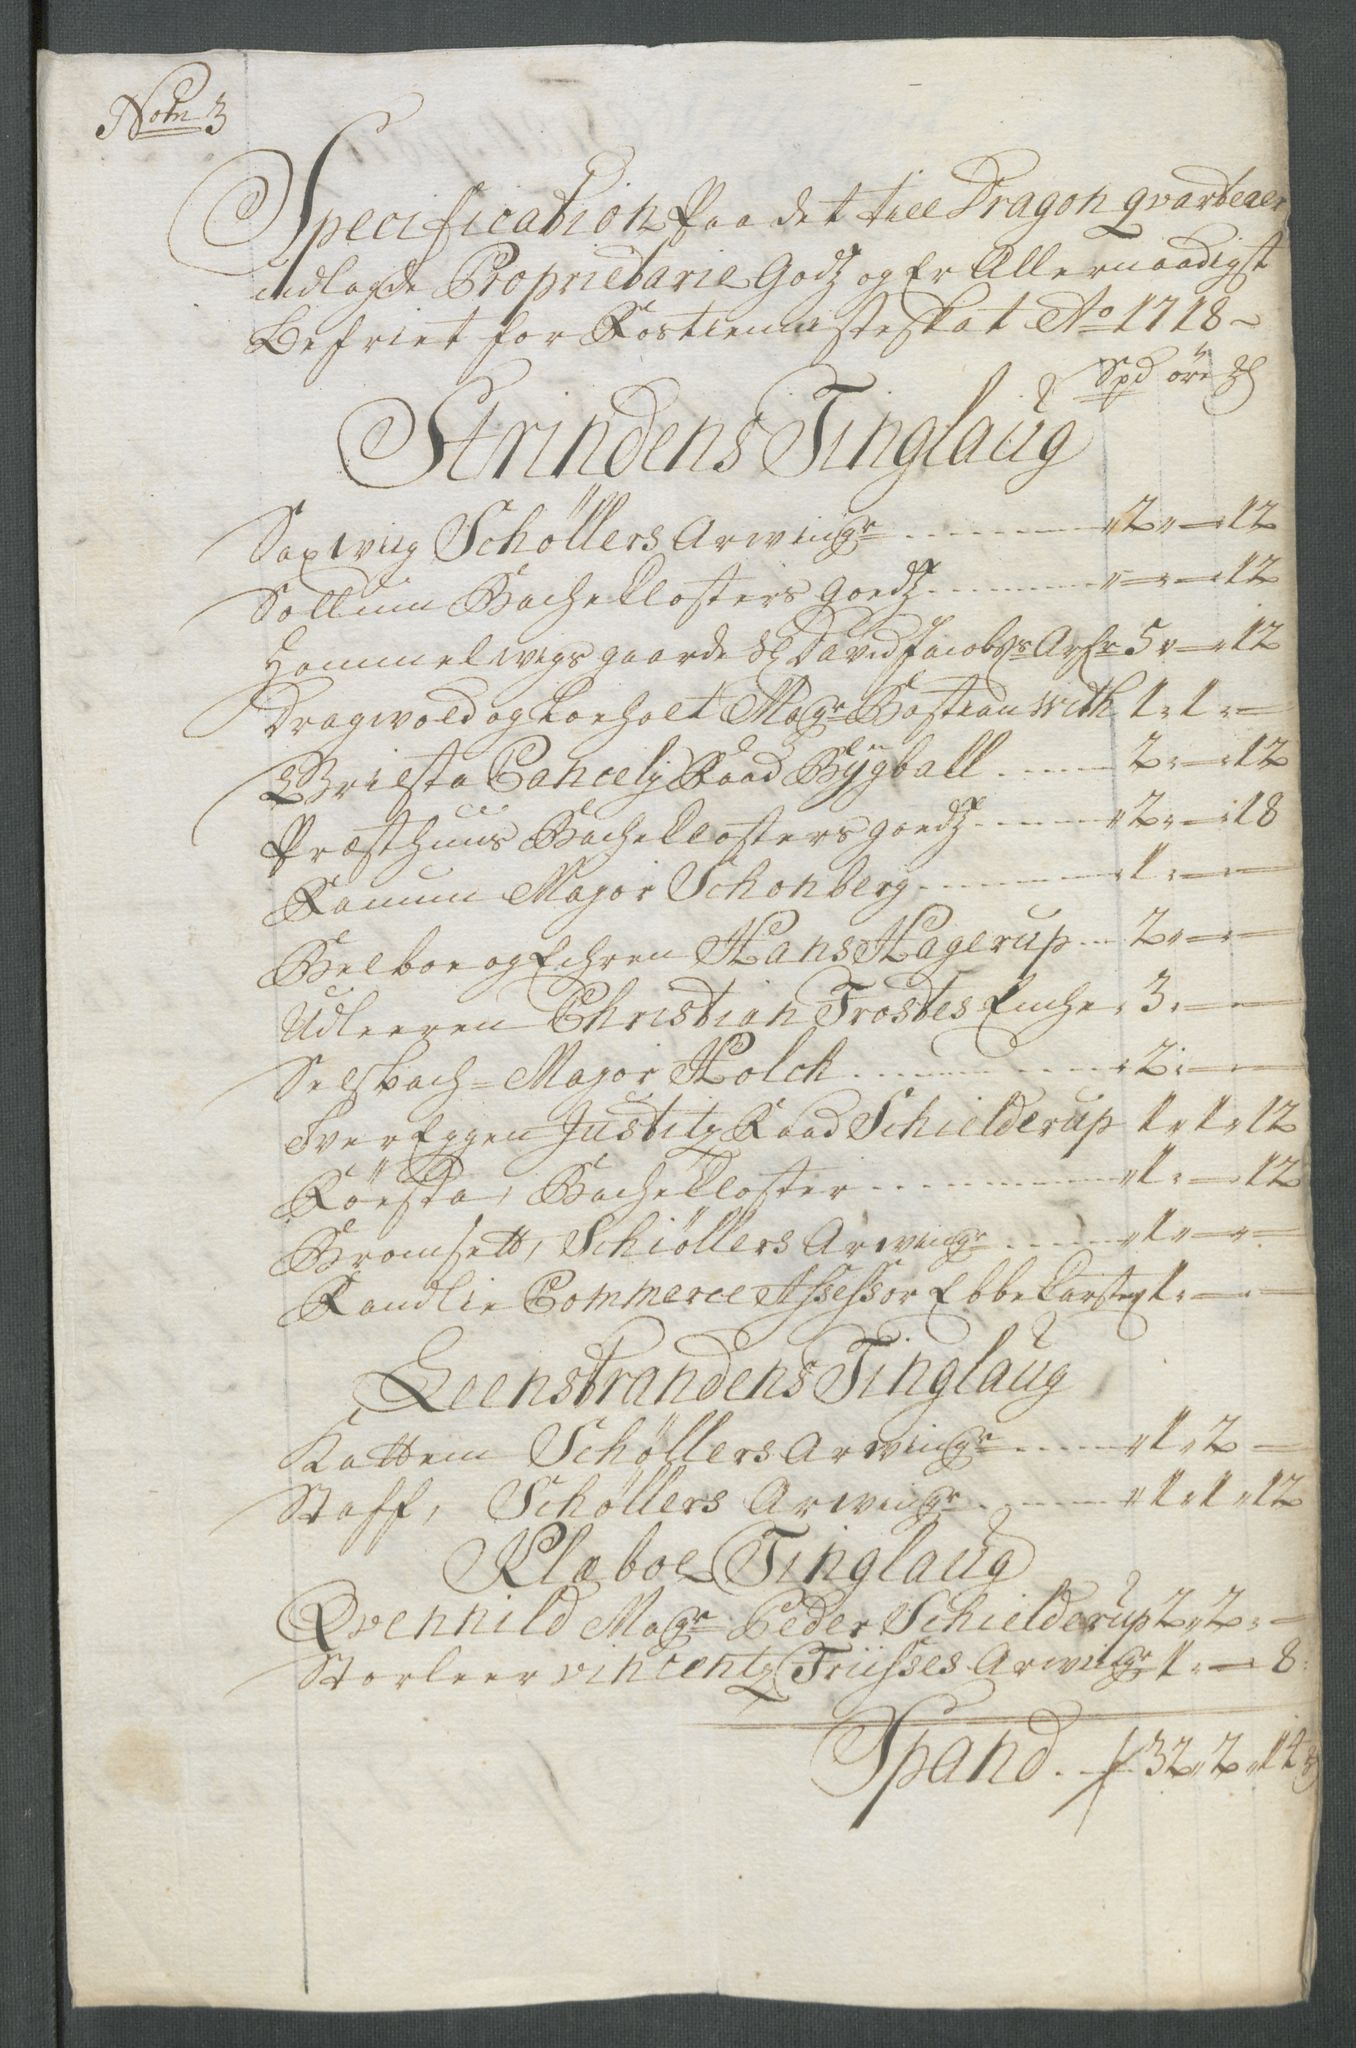 Nom 3
Specification Paa det till Dragon qvarteer
udlagde Proprietarie Godz og Er Allernaadigst
Befriet for Rostienniste skat Ao 1718
Spd öre
Strindens Tinglaug
Saxwiig Schöllers Arwing: 2 - 12
Sollum Bache Closters goedz - - 12
Hommelwigs gaarde Sl David Jacobs: Arf: 5 - 12
Dragwold og Loeholt Magr Bastian With 1 1 -
Griesta Cancely Raad Bÿgball 2 - 12
Præsthuus Bache Closters goedz 2 - 18
Ranum Major Schonberg 1 - -
Belboe og Echren Hans Hagerup 2 - -
Udleeren Christian Frostes Enche 3 - -
Selsbach Major Holck 2 - -
Tver Eggen Justitz Raad Schielderup 1 1 12
Röesta, Bache Closter 1 - 12
Bromsett, Schiöllers Arwing: 1 - -
Randlie Commerce Assessor Ebbe Carstens 1 - -
Leenstrandens Tinglaug
Kattem Schøllers Arwing: 1 2 -
Staff, Schøllers Arwing: 1 1 12
Klæboe Tinglaug
Qvennild Magr Peder Schielderup 2 2 -
Storleer vincentz Friisses Arwing: 1 - 8
Spand 32 2 14